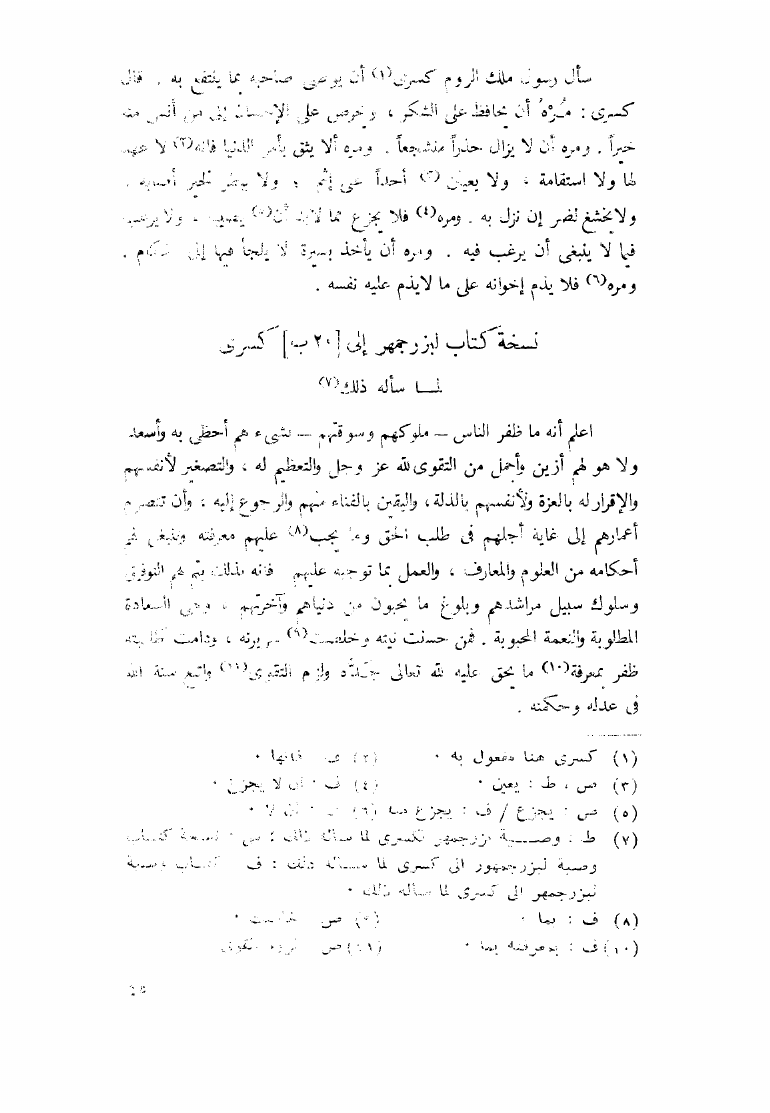 سأل رسول ملك الروم كسرى(١) أن يوصى صاحبه بما ينتفع به . قال
كسرى : مُرْهُ أن يحافظ على الشكر ، ويحرص على الإحسان إلى من أنس منه
خيراً . ومره أن لا يزال حذراً متشجعاً . ومره ألا يثق بأمر الدنيا فانه(٢) لا عهد
لها ولا استقامة ، ولا يعيبن(٣) أحداً على إثم ، ولا يبطر لخير أصابه .
ولا يخشع لضر إن نزل به . ومره(٤) فلا يجزع مما لابد أن(٥) يصيبه ، ولا يرغب
فيما لا ينبغى أن يرغب فيه . ومره أن يأخذ بسيرة لا يلجأ فيها إلى
ومره(٦) فلا يذم إخوانه على ما لايذم عليه نفسه .
نسخة كتاب لبزرجمهر إلى [٢٠ ب] كسرى
لمـا سأله ذلك(٧)
اعلم أنه ما ظفر الناس – ملوكهم وسوقتهم – بشىء هم أحظى به وأسعد
ولا هو لهم أزين وأجمل من التقوى لله عز وجل والتعظيم له ، والتصغير لأنفسهم
والإقرار له بالعزة ولأنفسهم بالذلة ، واليقين بالفناء منهم والرجوع إليه ، وأن تنصرم
أعمارهم إلى غاية أجلهم فى طلب الحق وما يجب(٨) عليهم معرفته وينبغى لهم
أحكامه من العلوم والمعارف ، والعمل بما توجبه عليهم فانه بذلك يتم لهم التوفيق
وسلوك سبيل مراشدهم وبلوغ ما يحبون من دنياهم وآخرتهم ، وهى السعادة
المطلوبة والنعمة المحبوبة . فمن حسنت نيته وخلصت(٩) سريرته ، ودامت
ظفر بمعرفة(١٠) ما يحق عليه لله تعالى جَدّه ولزم التقوى(١١) واتبع سنة الله
فى عدله وحكمته .
(١) كسرى هنا مفعول به . (٢) ف فانها .
(٣) ص ، ط : يعين . (٤) ف : أن لا يجزع .
(٥) ص : يجزع / ف : يجزع مما (٦) ف : أن لا .
(٧) ط : وصـــية بزرجمهر لكسرى لما سأله ذلك ؛ ص : نسخة كتاب
وصية لبزرجمهور الى كسرى لما سأله ذلك : ف كتاب وصية
لبزرجمهر الى كسرى لما سأله ذلك .
(٨) ف : بما . (٩) ص
(١٠) ف : بمعرفته بما . (١١) ص لزوم التقوى